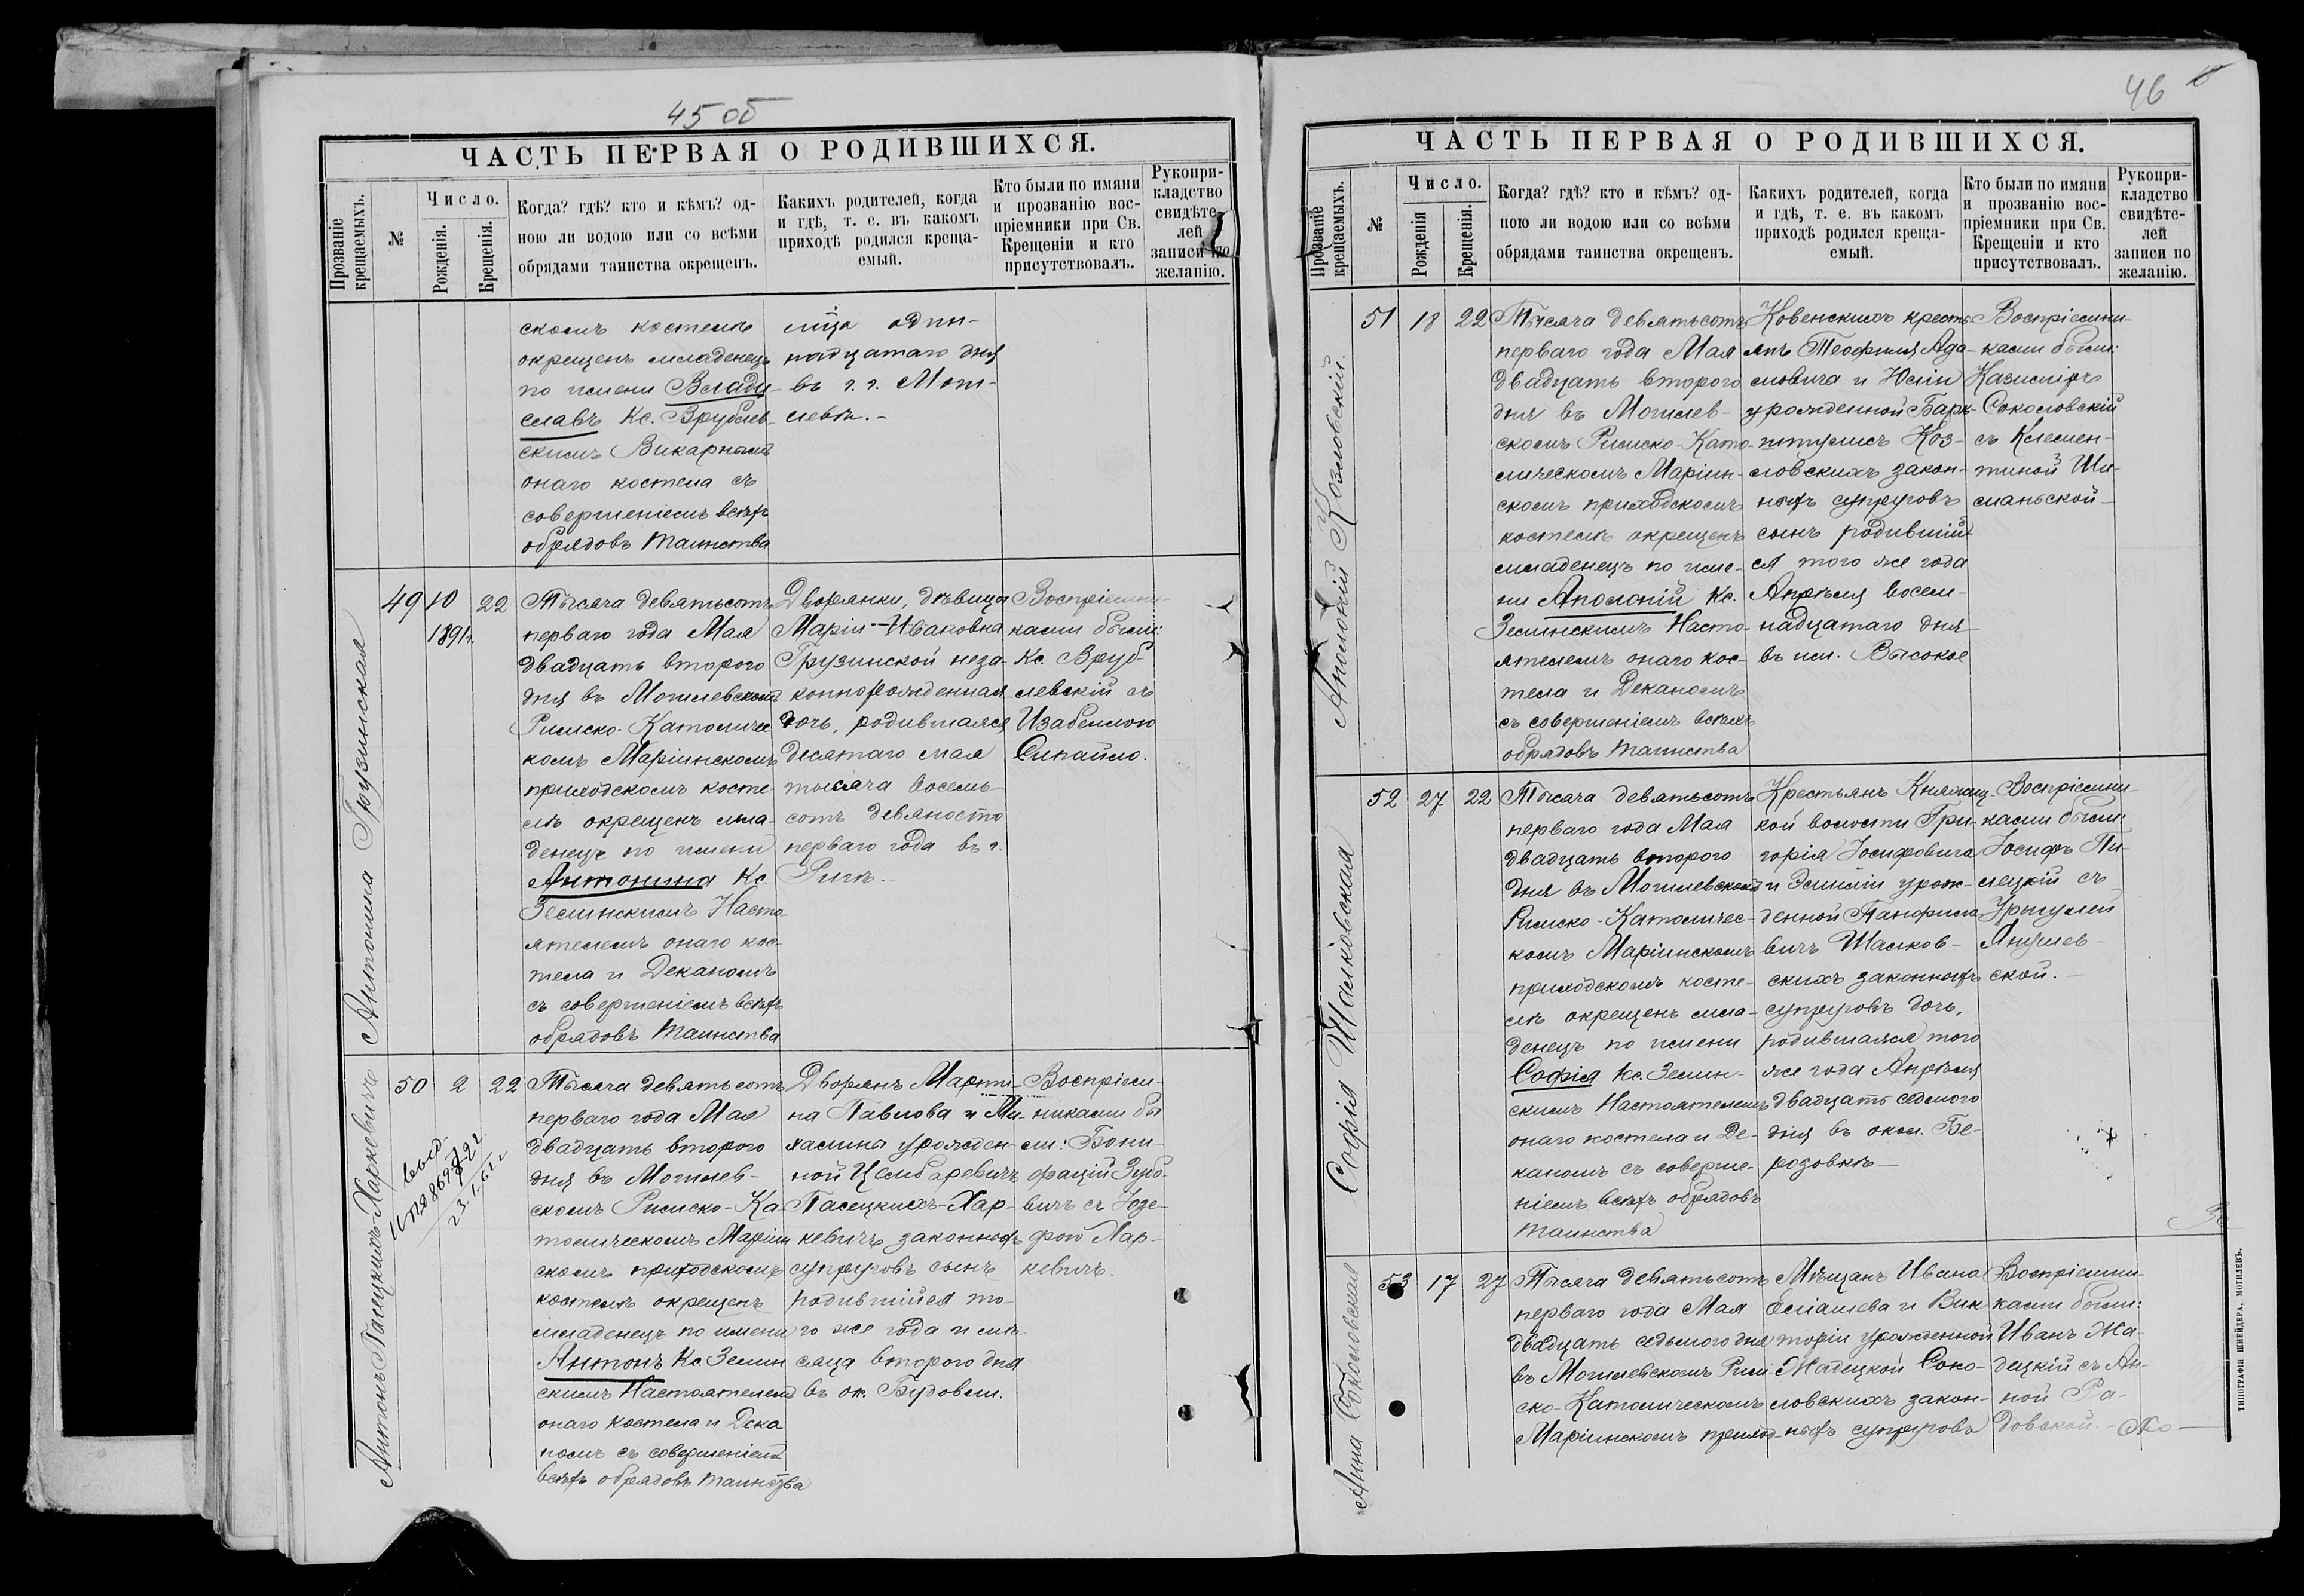 45 об
ЧАСТЬ ПЕРВАЯ О РОДИВШИХСЯ.
Прозваніе крещаемыхъ.
№
Число.
Рожденія.
Крещенія.
Когда? гдѣ? кто и кѣмъ? од-
ною ли водою или со всѣми
обрядами таинства окрещенъ.
Какихъ родителей, когда
и гдѣ, т. е. въ какомъ
приходѣ родился креща-
емый.
Кто были по имяни
и прозванію вос-
пріемники при Св.
Крещеніи и кто
присутствовалъ.
Рукопри-
кладство
свидѣте-
лей
записи по
желанію.
скомъ костелѣ
окрещенъ младенецъ
по имени Влади-
славъ Кс. Врублев-
скимъ Викарнымъ
онаго костела съ
совершеніемъ всѣхъ
обрядовъ таинства
сяца один-
надцатаго дня
въ г. г. Моги-
левѣ.-
Антонина Грузинская
49
10
1891 г.
22
Тысяча девятьсотъ
перваго года Мая
двадцать второго
дня въ Могилевскомъ
Римско-Католичес
комъ Маріинскомъ
приходскомъ косте-
лѣ окрещенъ мла-
денецъ по имени
Антонина Кс.
Землинскимъ Насто-
ятелемъ онаго кос-
тела и Деканомъ
съ совершеніемъ всѣхъ
обрядовъ таинства
Дворянки, дѣвицы
Маріи-Ивановна
Грузинской неза-
коннорожденная
дочь, родившаяся
десятаго мая
тысяча восемь
сотъ девяносто
перваго года въ г.
Ригѣ.-
Воспріемни-
ками были:
Кс. Вруб-
левскій съ
Изабеллою
Сипайло.
Антонъ Пасецкихъ-Харкевичъ
50
2
22
выд.
23.I.61 г.
Тысяча девятьсотъ
перваго года Мая
двадцать второго
дня въ Могилев-
скомъ Римско-Ка
толическомъ Маріин
скомъ приходскомъ
костелѣ окрещенъ
младенецъ по имени
Антонъ Кс Землин
скимъ Настоятелемъ
онаго костела и Дека
номъ съ совершеніемъ
всѣхъ обрядовъ таинства
Дворянъ Марти-
на Павлова и Ми-
халины урожден-
ной Цембаревичъ
Пасецкихъ-Хар-
кевичъ законныхъ
супруговъ сынъ
родившійся то-
го же года и мѣ-
сяца второго дня
въ ок. Будовли.
Воспріем-
никами бы
ли: Бони-
фацій Зубо-
вичъ съ Юзе-
фой Хар-
кевичъ.
46
ЧАСТЬ ПЕРВАЯ О РОДИВШИХСЯ.
Прозваніе крещаемыхъ.
№
Число.
Рожденія
Крещенія.
Когда? гдѣ? кто и кѣмъ? од-
ною ли водою или со всѣми
обрядами таинства окрещенъ.
Какихъ родителей, когда
и гдѣ, т. е. въ какомъ
приходѣ родился креща-
емый.
Кто были по имяни
и прозванію вос-
пріемники при Св.
Крещеніи и кто
присутствовалъ.
Рукопри-
кладство
свидѣте-
лей
записи по
желанію.
Аполоній Козловскій.
51
18
22
Тысяча девятьсотъ
перваго года Мая
двадцать второго
дня въ Могилев-
скомъ Римско-Като-
лическомъ Маріин-
скомъ приходскомъ
костелѣ окрещенъ
младенецъ по име-
ни Аполоній Кс.
Землинскимъ Насто-
ятелемъ онаго кос-
тела и Деканомъ
съ совершеніемъ всѣхъ
обрядовъ таинства
Ковенскихъ кресть-
янъ Теофиля Ада-
мовича и Юліи
урожденной Барк-
Коз-
ловскихъ закон-
ныхъ супруговъ
сынъ родившій-
ся того же года
Апрѣля восем-
надцатаго дня
въ им. Высокое
Воспріемни-
ками были:
Казиміръ
Соколовскій
съ Клемен-
тиной Ши-
маньской-
Софія Шалковская
52
27
22
Тысяча девятьсотъ
перваго года Мая
двадцать второго
дня въ Могилевскомъ
Римско-Католичес-
комъ Маріинскомъ
приходскомъ косте-
лѣ окрещенъ мла-
денецъ по имени
Софія Кс. Землин-
скимъ Настоятелемъ
онаго костела и Де-
каномъ съ соверше-
ніемъ всѣхъ обрядовъ
таинства
Крестьянъ Княжиц-
кой волости Гри-
горія Іосифовича
и Эмиліи урож-
денной Панфило-
вичъ Шалков-
скихъ законныхъ
супруговъ дочь,
родившаяся того
же года Апрѣля
двадцать седьмого
дня въ окол. Бе-
резовкѣ-
Воспріемни-
ками были:
Іосифъ Пи-
лецкій съ
Уршулей
Янушев-
ской.-
Анна Соколовская
53
17
27
Тысяча девятьсотъ
перваго года Мая
двадцать седьмого дня
въ Могилевскомъ Рим
ско-Католическомъ
Маріинскомъ приход-
Мѣщанъ Ивана
Еліашева и Вик
торіи урожденной
Жадецкой Соко-
ловскихъ закон-
ныхъ супруговъ
Воспріемни-
ками были:
Иванъ Жа-
децкій съ Ан-
ной Ра-
довской.-
ТИПОГРАФІЯ ШНЕЙДЕРА, МОГИЛЕВЪ.